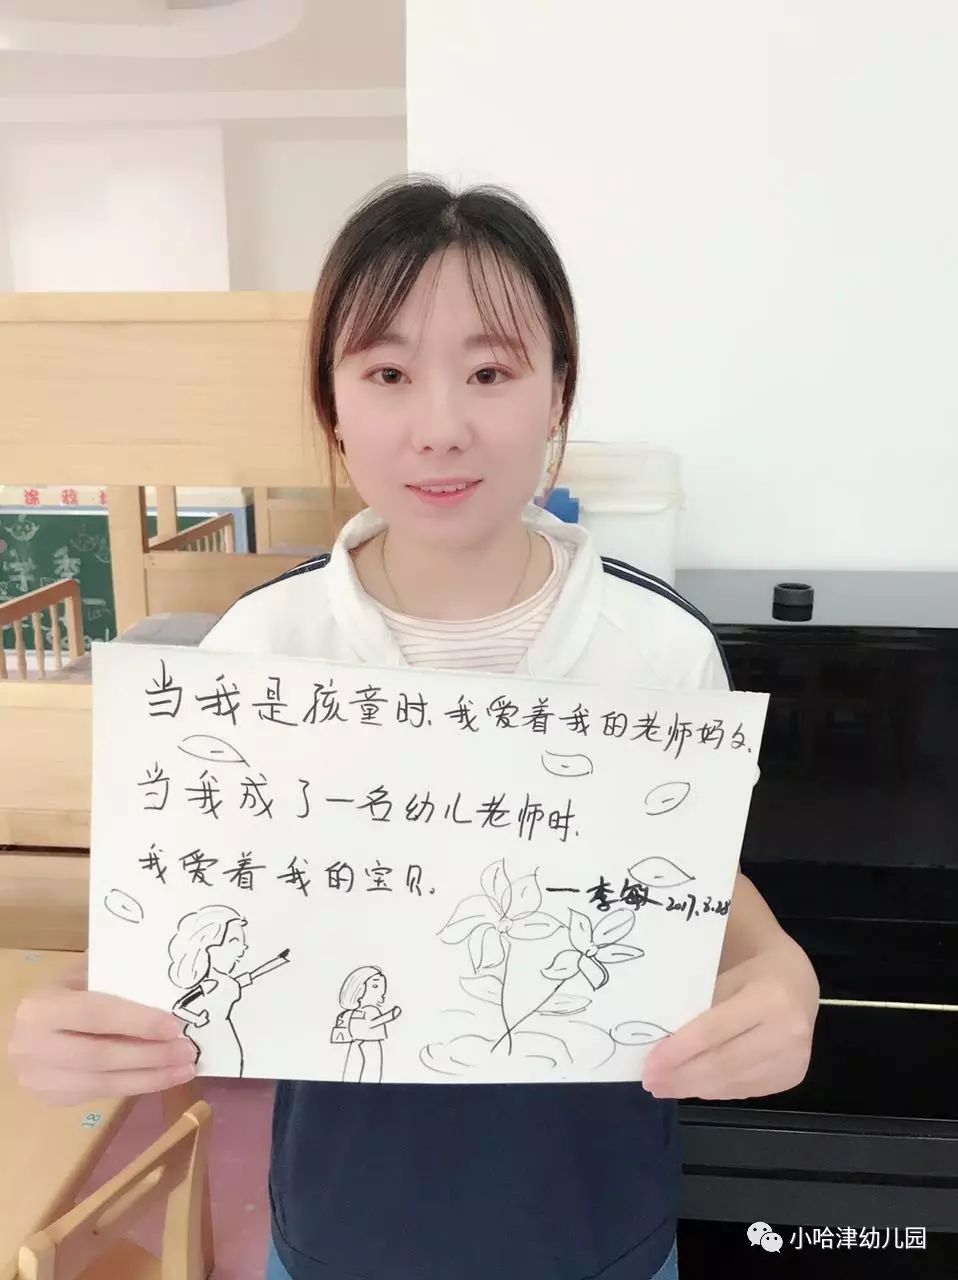 当我是孩童时.我爱着我的老师妈妈.
当我成了一名幼儿老师时.
我爱着我的宝贝.
一李敏 2017.8.28
18
小哈津幼儿园